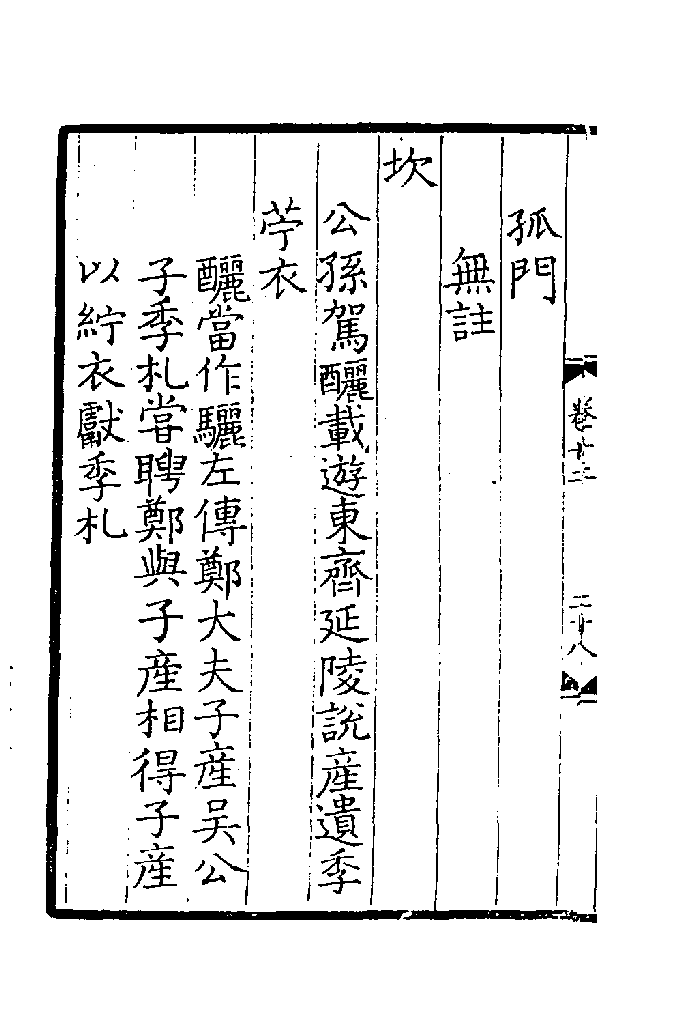 孤門
無註
坎
公孫駕釃載遊東齊延陵說產遺季
苧衣
釃當作驪左傳鄭大夫子產吳公
子季札嘗聘鄭與子產相得子產
以紵衣獻季札
卷廿二
二十八